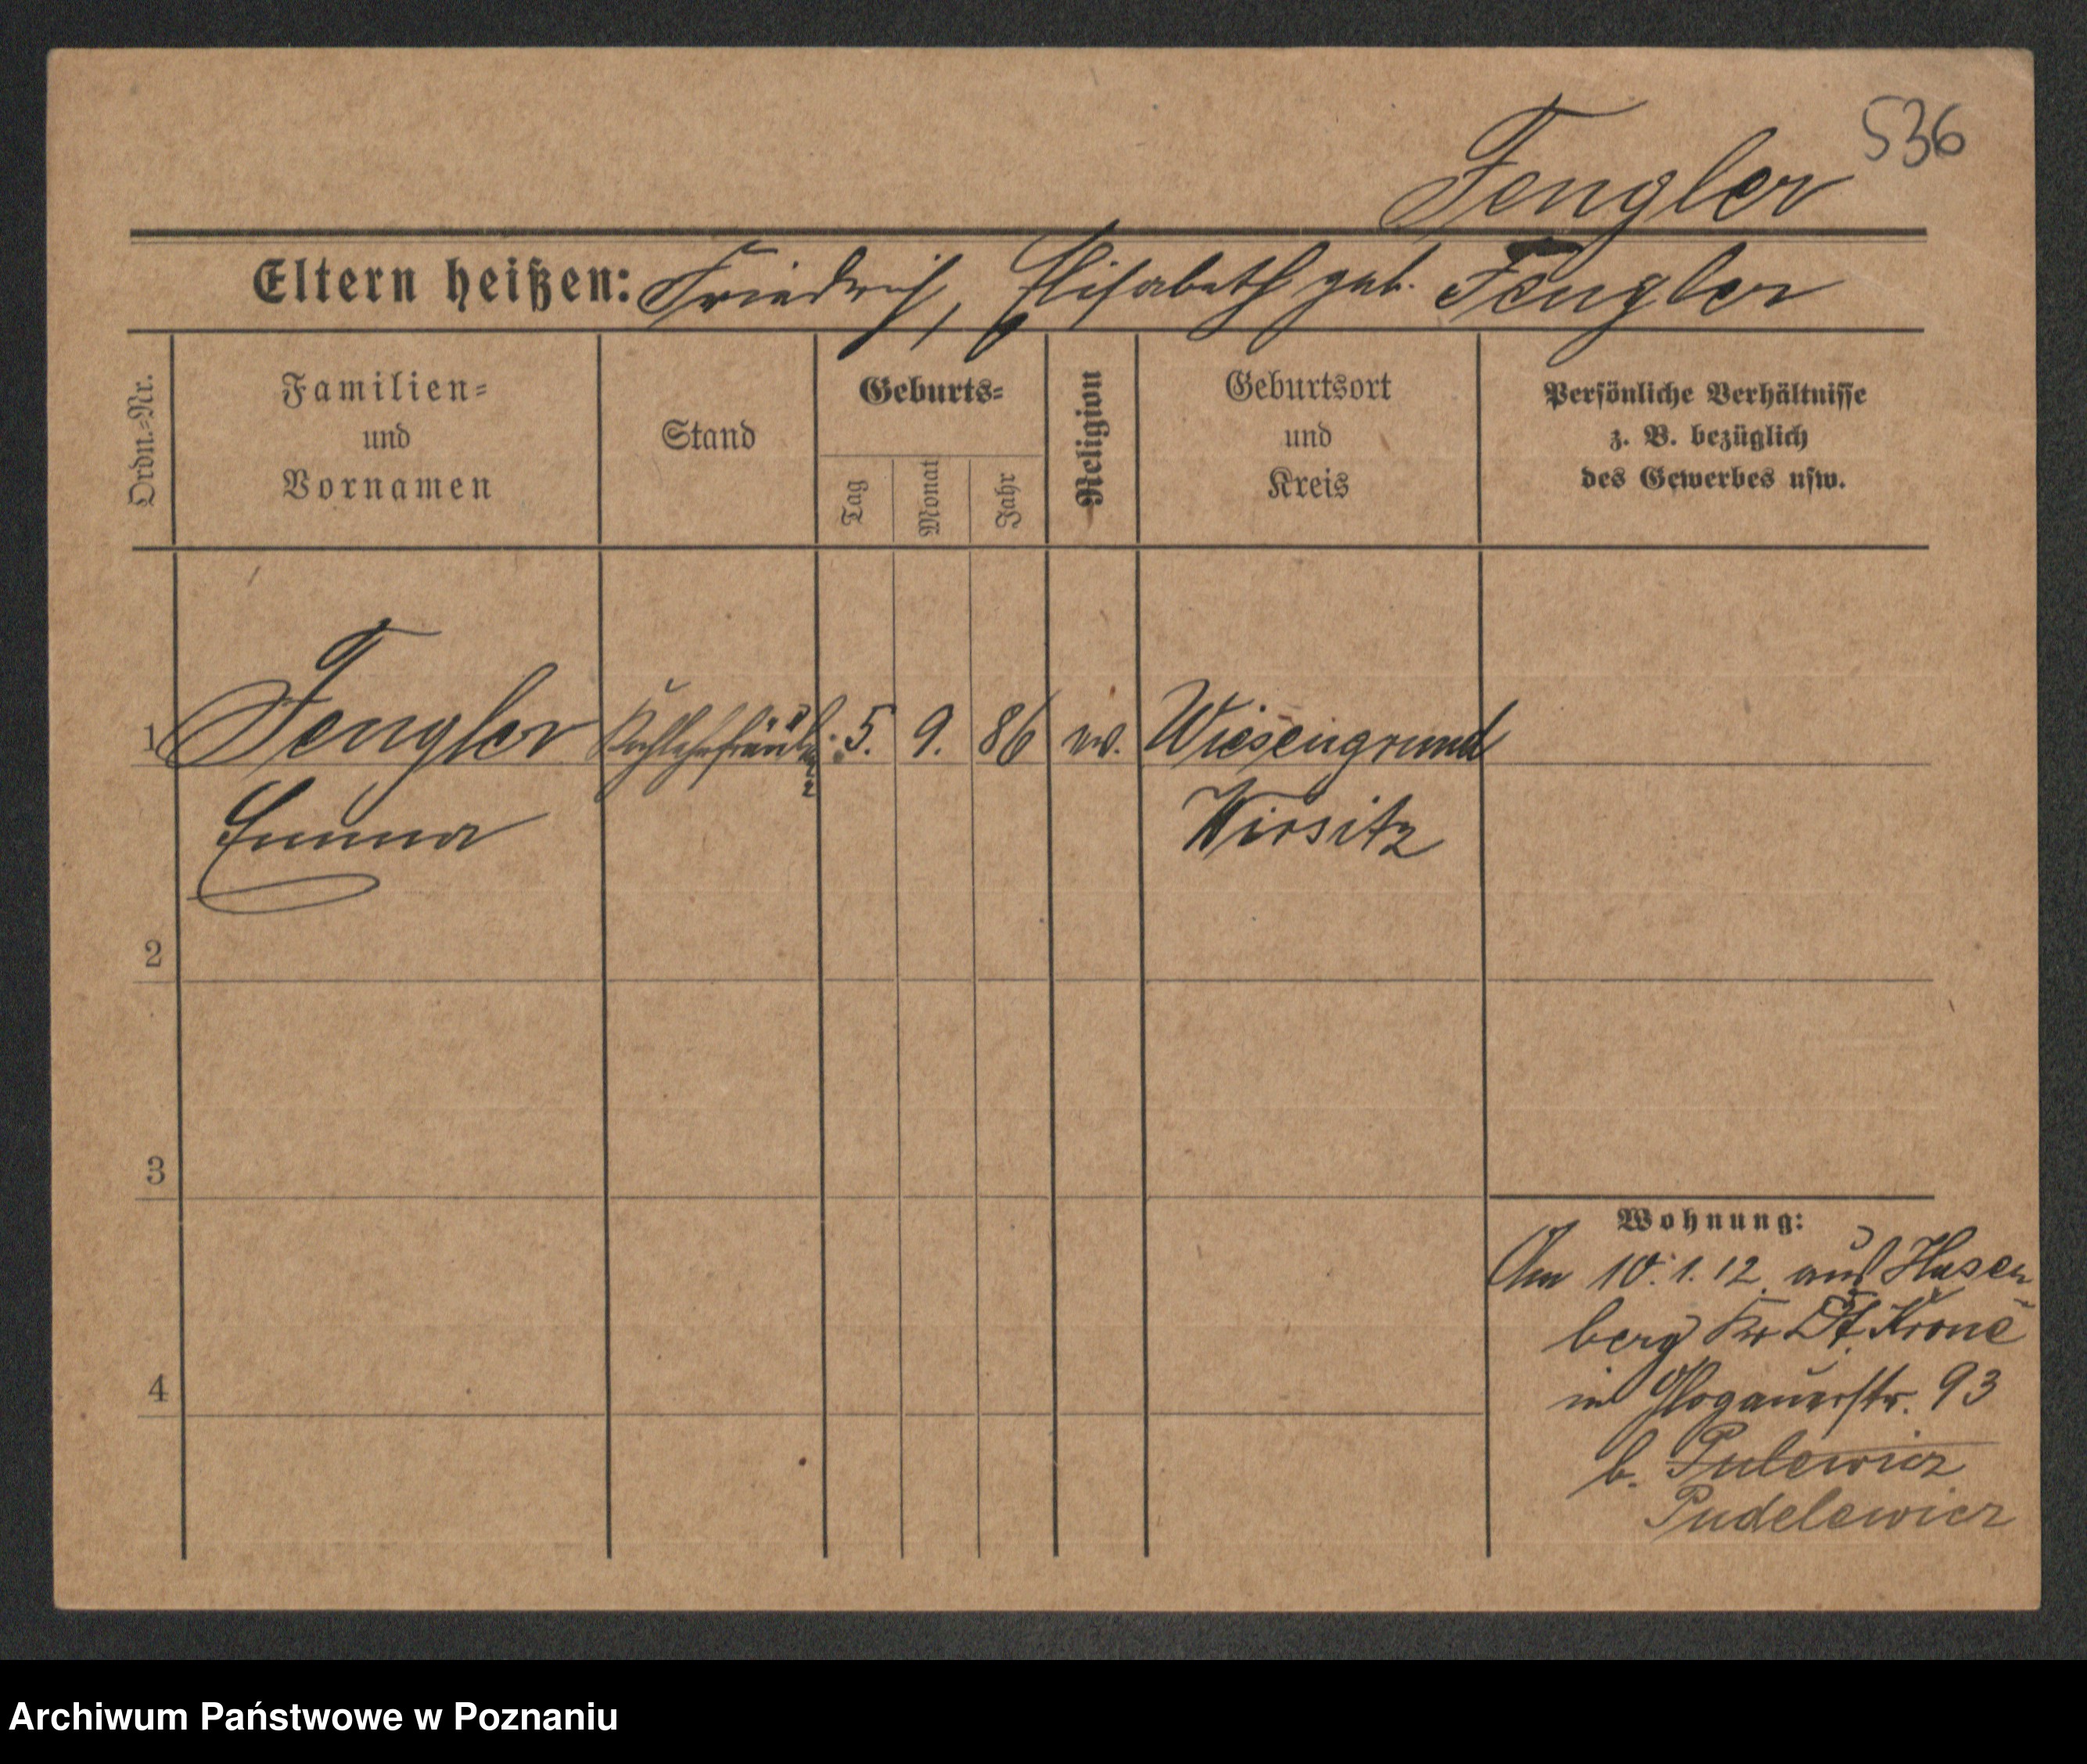 536
Fengler
Eltern heißen: Friedrich, Elisabeth geb. Fengler
Ordn.-Nr.
Familien-
und
Vornamen
Stand
Geburts-
Tag
Monat
Jahr
Religion
Geburtsort
und
Kreis
Persönliche Verhältnisse
z. B. bezüglich
des Gewerbes usw.
1 Fengler 5. 9. 86 ev. Wiesengrund
Emma Wirsitz
2
3
4
Wohnung:
Am 10.1.12. aus Hasen
berg Kr Dt. Krone
in Glogauerstr. 93
b. Pulewicz
Pudelewicz
Archiwum Państwowe w Poznaniu